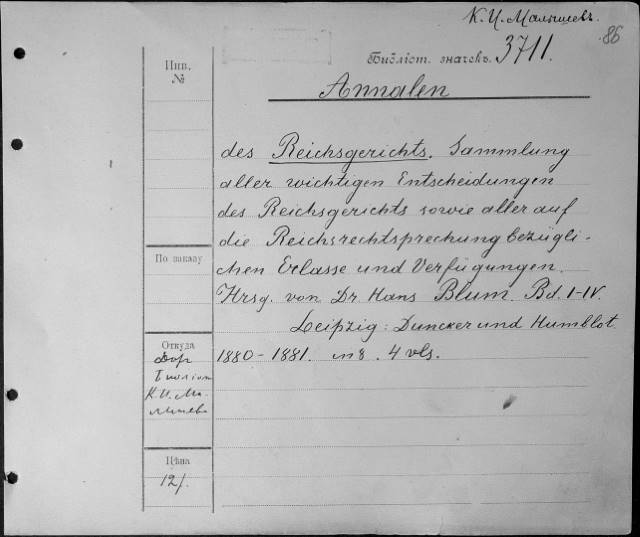 К. И. Малышевъ.
86
Библіот. значекъ. 3711.
Инв.
№
Annalen
des Reichsgerichts. Sammlung
aller wichtigen Entscheidungen
des Reichsgerichts sowie aller auf
die Reichsrechtsprechung bezügli-
chen Erlasse und Verfügungen.
Hrsg. von Dr. Hans Blum. Bd. I-IV.
Leipzig: Duncker und Humblot.
1880-1881. in 8. 4 vls.
По заказу
Откуда
К. И. Ма-
лышева
Цѣна
12/.